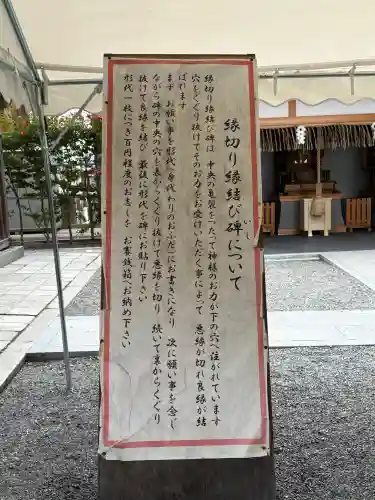 縁切り縁結び碑について
いし
縁切り縁結び碑は 中央の亀裂をつたって神様のお力が下の穴へ注がれています
穴をくぐり抜けてそのお力をお受けいただく事によって 悪縁が切れ良縁が結
ばれます
まず お願い事を形代(身代わりのおふだ)にお書きになり 次に願い事を念じ
ながら碑の中央の穴を表からくぐり抜けて悪縁を切り 続いて裏からくぐり
抜けて良縁を結び 最後に形代を碑にお貼り下さい
形代一枚につき百円程度のお志しを お賽銭箱へお納め下さい